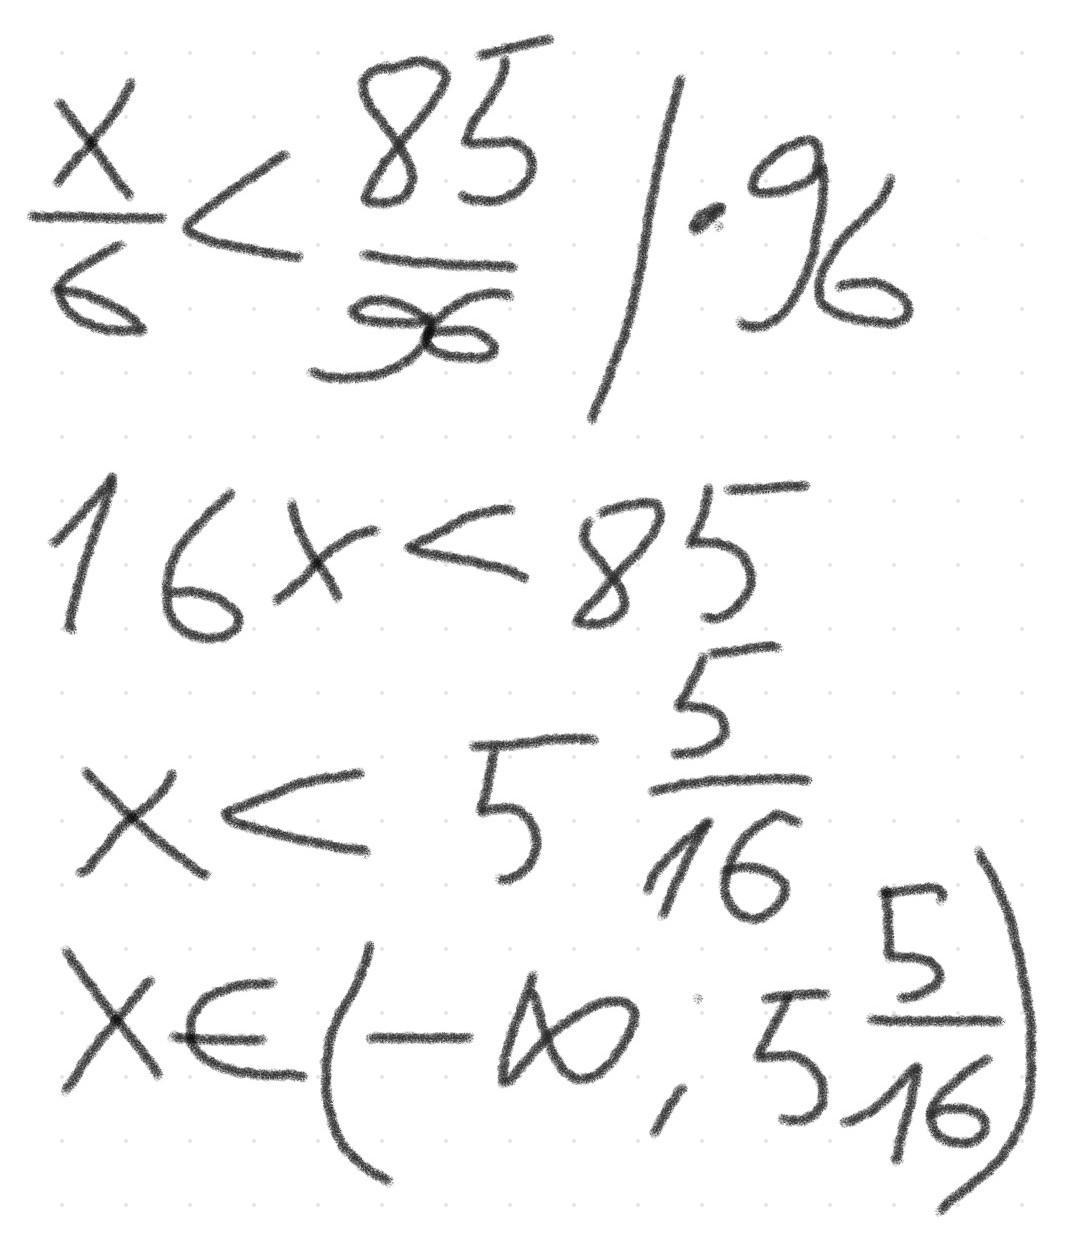 x/6 < 85/96 | · 96
16x < 85
x < 5 5/16
x ∈ (-∞, 5 5/16)